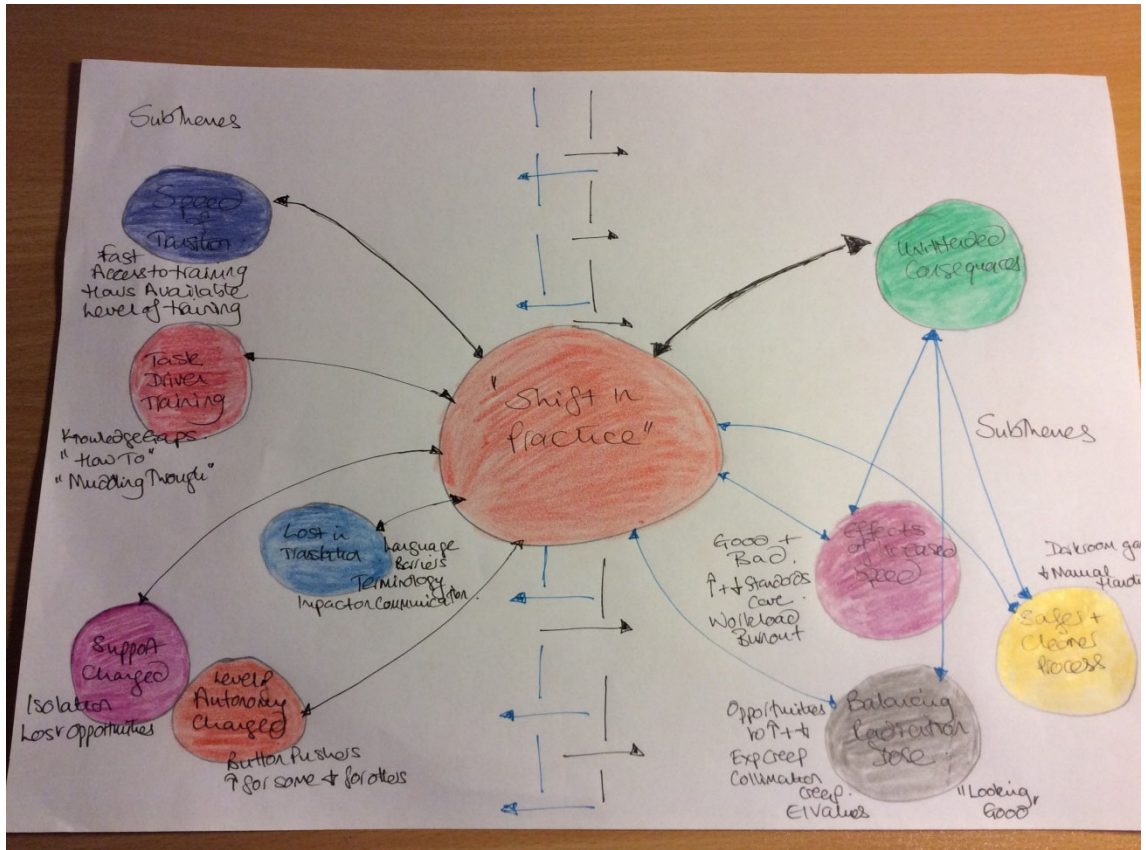 Subthemes
Speed
of
Transition
Fast
Access to training
Hours Available
Level of training
Task
Driven
Training
Knowledge Gaps.
"How To"
"Muddling Through"
Lost in
Translation
Language
Barriers
Terminology
Impact on Communication.
Support
Changed
Isolation
Lost Opportunities
Level of
Autonomy
Changed
Button Pushers
↑ for some ↓ for others
"Shift in
Practice"
Unintended
Consequences
Subthemes
Effects
of Increased
Speed
Good +
Bad.
↑ + ↓ Standards
Care
Workload
Burnout
Darkroom
↓ Manual
Safer +
Cleaner
Process
Balancing
Radiation
Dose
Opportunities
to ↑ + ↓
Exp Creep
Collimation
Creep.
EI Values
"Looking
Good"